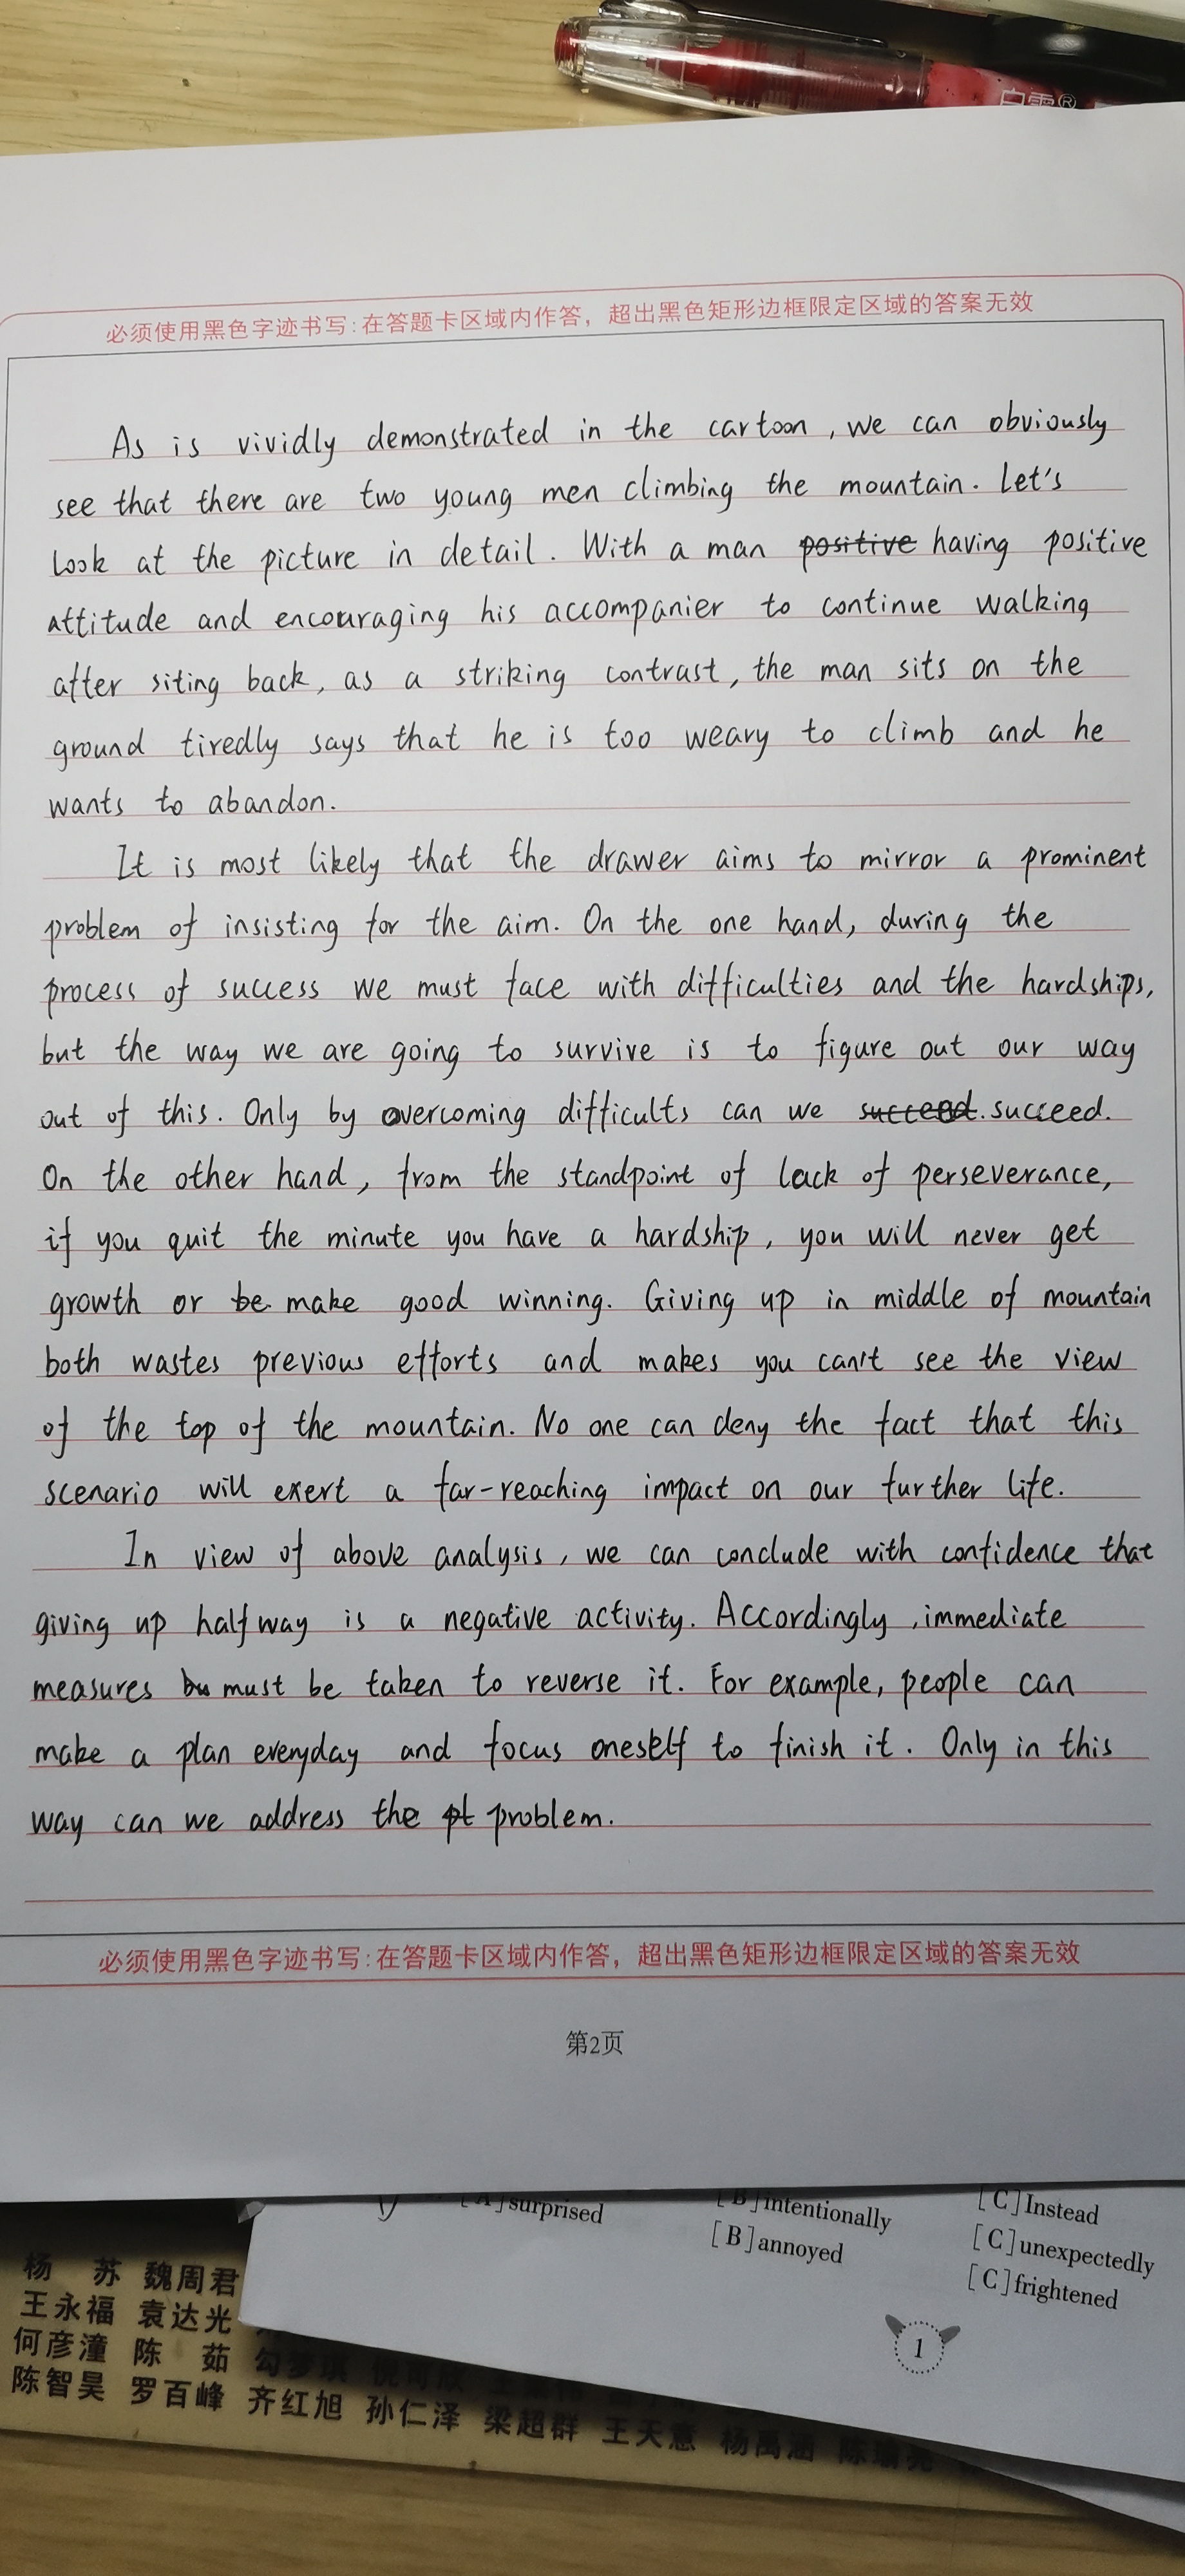 白雪®
必须使用黑色字迹书写:在答题卡区域内作答，超出黑色矩形边框限定区域的答案无效
As is vividly demonstrated in the cartoon, we can obviously
see that there are two young men climbing the mountain. Let's
look at the picture in detail. With a man positive having positive
attitude and encouraging his accompanier to continue walking
after siting back, as a striking contrast, the man sits on the
ground tiredly says that he is too weary to climb and he
wants to abandon.
It is most likely that the drawer aims to mirror a prominent
problem of insisting for the aim. On the one hand, during the
process of success we must face with difficulties and the hardships,
but the way we are going to survive is to figure out our way
out of this. Only by overcoming difficults can we succeed. succeed.
On the other hand, from the standpoint of lack of perseverance,
if you quit the minute you have a hardship, you will never get
growth or be make good winning. Giving up in middle of mountain
both wastes previous efforts and makes you can't see the view
of the top of the mountain. No one can deny the fact that this
scenario will exert a far-reaching impact on our further life.
In view of above analysis, we can conclude with confidence that
giving up halfway is a negative activity. Accordingly, immediate
measures bu must be taken to reverse it. For example, people can
make a plan everyday and focus oneself to finish it. Only in this
way can we address the pt problem.
必须使用黑色字迹书写:在答题卡区域内作答，超出黑色矩形边框限定区域的答案无效
第2页
[A]surprised [B]intentionally [C]Instead
[B]annoyed [C]unexpectedly
[C]frightened
1
杨 苏 魏周君
王永福 袁达光
何彦潼 陈 茹
陈智昊 罗百峰 齐红旭 孙仁泽 梁超群 王天意 杨禹涵